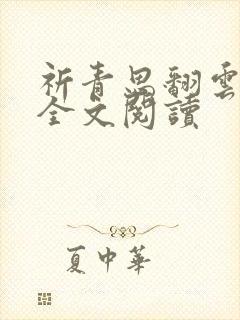 祈青思翻雲
全文閱讀
夏中華